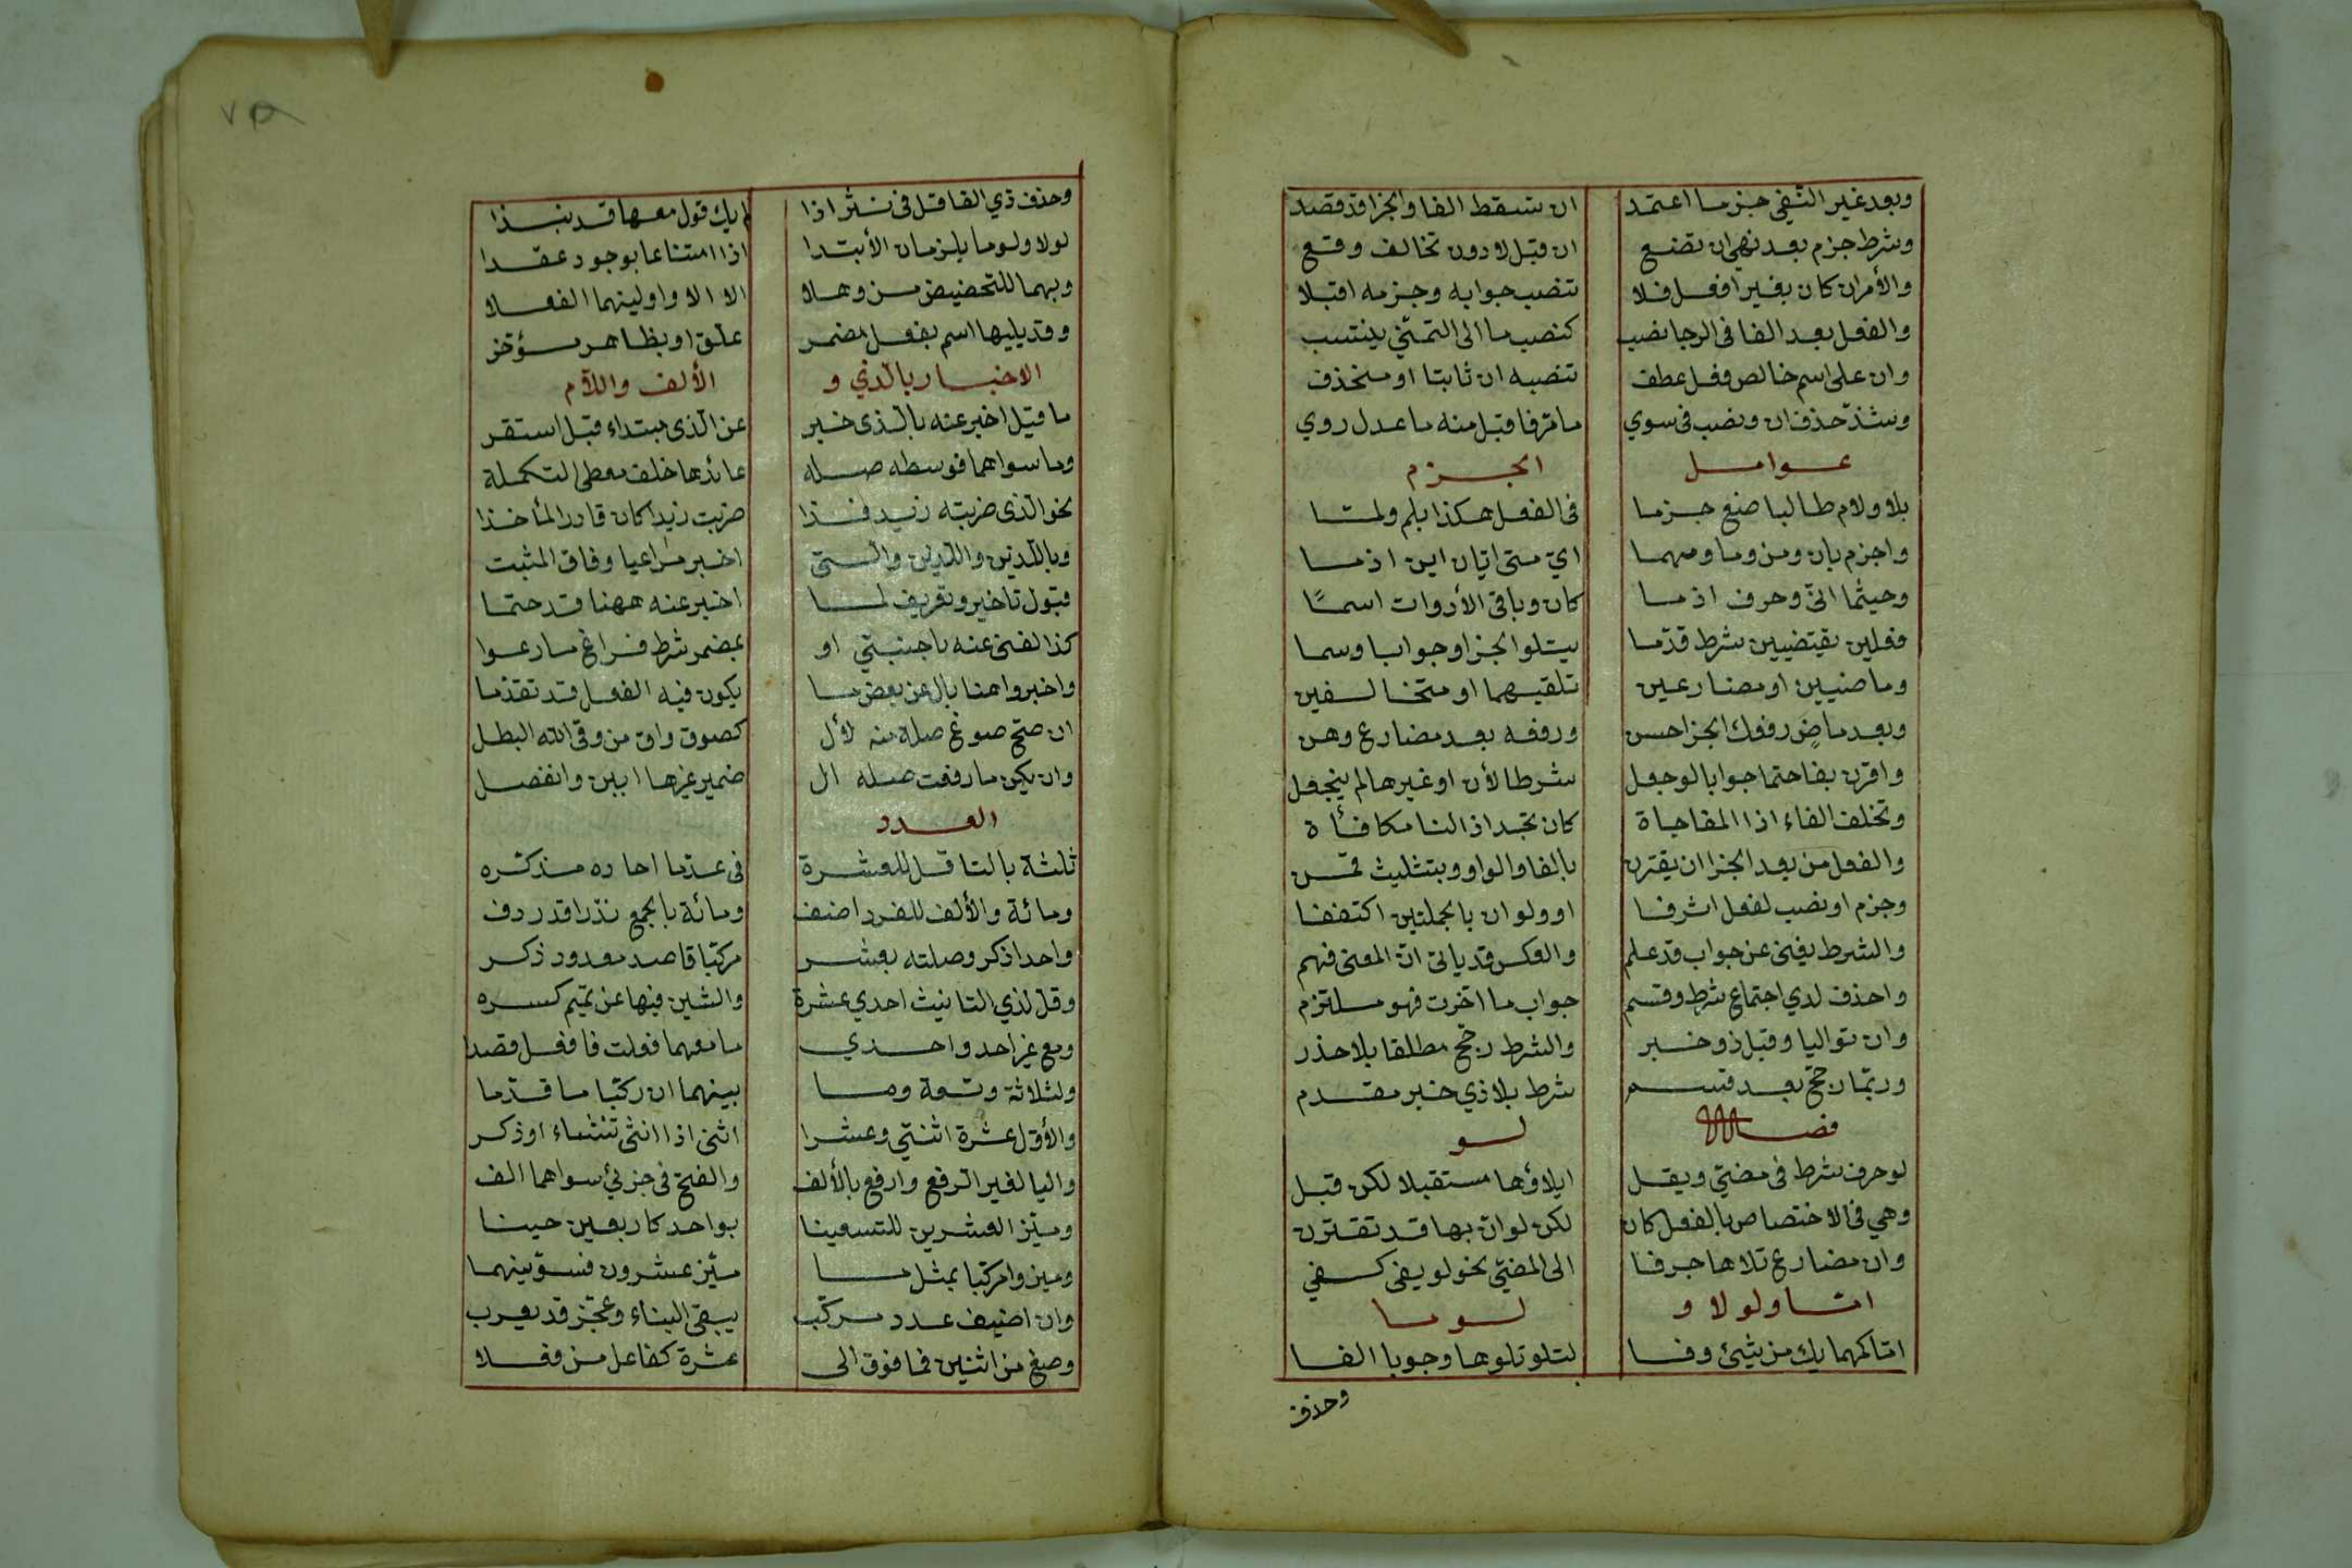 وبعد غير النفي جزما اعتمد ان تسقط الفا والجزا قد قصد
وشرط جزم بعد نهي ان تضع ان قبل لا دون تخالف وقع
والأمر ان كان بغير افعل فلا تنصب جوابه وجزمه اقبلا
والفعل بعد الفا في الرجا نصب كنصب ما الى التمنّي ينتسب
وان على اسم خالص فعل عطف تنصبه ان ثابتا او منحذف
وشذّ حذف ان ونصب في سوي ما مرّ فاقبل منه ما عدل روي
عوامل الجزم
بلا ولام طالبا ضع جزما في الفعل هكذا بلم ولمّا
واجزم بان ومن وما ومهما ايّ متى ايّان اين اذما
وحيثما انّى وحرف اذ ما كان وباقي الأدوات اسمًا
فعلين يقتضيين شرط قدّما يتلوا الجزا وجوابا وسما
وماضيين او مضارعين تلقيهما او متخالفين
وبعد ماضٍ رفعك الجزا حسن ورفعه بعد مضارع وهن
واقرن بفا حتما جوابا لو جعل شرطا لأن او غيرها لم ينجعل
وتخلف الفاء اذا المفاجاة كان تجد اذا لنا مكافأة
والفعل من بعد الجزا ان يقترن بالفا والواو وبتثليث قمن
وجزم او نصب لفعل اثر فا او ولو ان بالجملتين اكتنفا
والشرط يغني عن جواب قد علم والعكس قد ياتي انّ المعنى فهم
واحذف لدي اجتماع شرط وقسم جواب ما اخّرت فهو ملتزم
وان تواليا وقبل ذو خبر والشرط رجّح مطلقا بلا حذر
وربّما رجّح بعد قسم شرط بلا ذي خبر مقدم
فصل لو
لو حرف شرط في مضيّ ويقل ايلاؤها مستقبلا لكن قبل
وهي في الاختصاص بالفعل كان لكن لو انّ بها قد تقترن
وان مضارع تلاها صرفا الى المضيّ نحو لو يفي كفي
امّا ولولا و لوما
امّا كمهما يك من شيئ وفا لتلو تلوها وجوبا الفا
وحذف
٧٥
وحذف ذي الفا قل في نثر اذا لم يك قول معها قد نبذا
لولا ولوما يلزمان الأبتدا اذا امتناعا بوجود عقدا
وبهما للتحضيض من وهلا الا الا واولينهما الفعلا
وقد يليها اسم بفعل مضمر علّق او بظاهر مؤخر
الاخبار بالّذي و الألف واللاّم
ما قيل اخبر عنه بالّذي خبر عن الّذي مبتداء قبل استقر
وما سواهما فوسطه صله عائدها خلف معطي التكملة
نحو الّذي ضربته زيد فذا ضربت زيدا كان فادر المأخذا
وباللّذين والّذين والّتي اخبر مراعيا وفاق المثبت
قبول تاخير وتعريف لما اخبر عنه ههنا قد حتما
كذا لغنى عنه باجنبيّ او بمضمر شرط فراع ما رعوا
واخبروا هنا بال عن بعض ما يكون فيه الفعل قد تقدّما
ان صحّ صوغ صلة منه لأل كصوق واق من وقى الله البطل
وان يكن ما رفعت صله ال ضمير غيرها ابين وانفصل
العدد
ثلثة بالتا قل للعشرة في عدّ ما احاده مذكّره
ومائة والألف للفرد اضف ومائة بالجمع نذرا قد ردف
واحد اذكر وصلنه بعشر مركّبا قاصد معدود ذكر
وقل لذي التانيث احدي عشرة والشين فيها عن تميم كسره
ومع غير احد واحدي ما معهما فعلت فافعل قصدا
ولثلاثة وتسعة وما بينهما ان ركّبا ما قدّما
والأوّل عشرة اثنتي وعشرا اثني اذا انثى تشاء او ذكر
واليا لغير الرفع وارفع بالألف والفتح في جزئي سواهما الف
وميّز العشرين للتسعينا بواحد كاربعين حينا
وميزوا مركّبا بمثل ما ميّز عشرون فسوّينهما
وان اضيف عدد مركّب يبقى البناء وعجز قد يعرب
وصغ من اثنين فما فوق الى عشرة كفاعل من فعلا